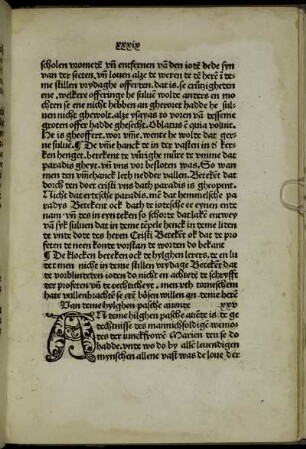 xxxix
scholen vromete vn̄ entfernen vā den iotē dede syn
van der secten. vn̄ louen alze te weren te tē herē i tes
me stillen vrydaghe offerten. dat is. se crutzigheten
ene. welkere offeringe he sulue wolte anters en mo
chten se ene nicht hebben an gheroret hadde he sul
uen nicht ghewolt. alze ysayas to voren vā tesseme
groten offer hadde ghesecht. Oblatus ē quia voluit.
He is gheoffert. wor vm̄e. wente he wolte dat ger
ne sulue. ¶ De vm̄ehanck te in ter vasten in ō ker
ken henget. betekent te vurighe mure te vmme dat
paradis gheyt. vn̄ vns vor besloten was. So wan
men ten vm̄ehanck leth nedder vallen. Betekēt dat
dorch ten doet cristi vns dath paradis is gheopent.
Nicht dat ertesche paradis. mē dat hemmelsche pa
radys Betekent ock dath te iotesche ee eynen ente
nam vn̄ tes in eyn teken so schorte dat lakē entwey
van syk suluen dat in teme tēpele henck in teme letes
te vnte dote tes heren Cristi Betekēt ok dat te pro
feten te neen konte vorstan te worten do bekant
¶ De klocken beteken ock te hylghen lerers. te en lu
tet men nicht in teme stillen vrydage Betekēt dat
te vorblinteten ioten do nicht en achtetē te schryffte
der profeten vn̄ te rechticheyt. men vth torne
hate vullenbrachtē se erē bösen willen an teme here
Van teme hylghen pasche auente xxv
An teme hilghen pasche auēte is te ge
dechtnisse tes mannichfoldigē wemo
tes ter iunckfrowē Marien ten se do
hadde. vnte wo do by allē leuendigen
mynschen allene vast was de loue der